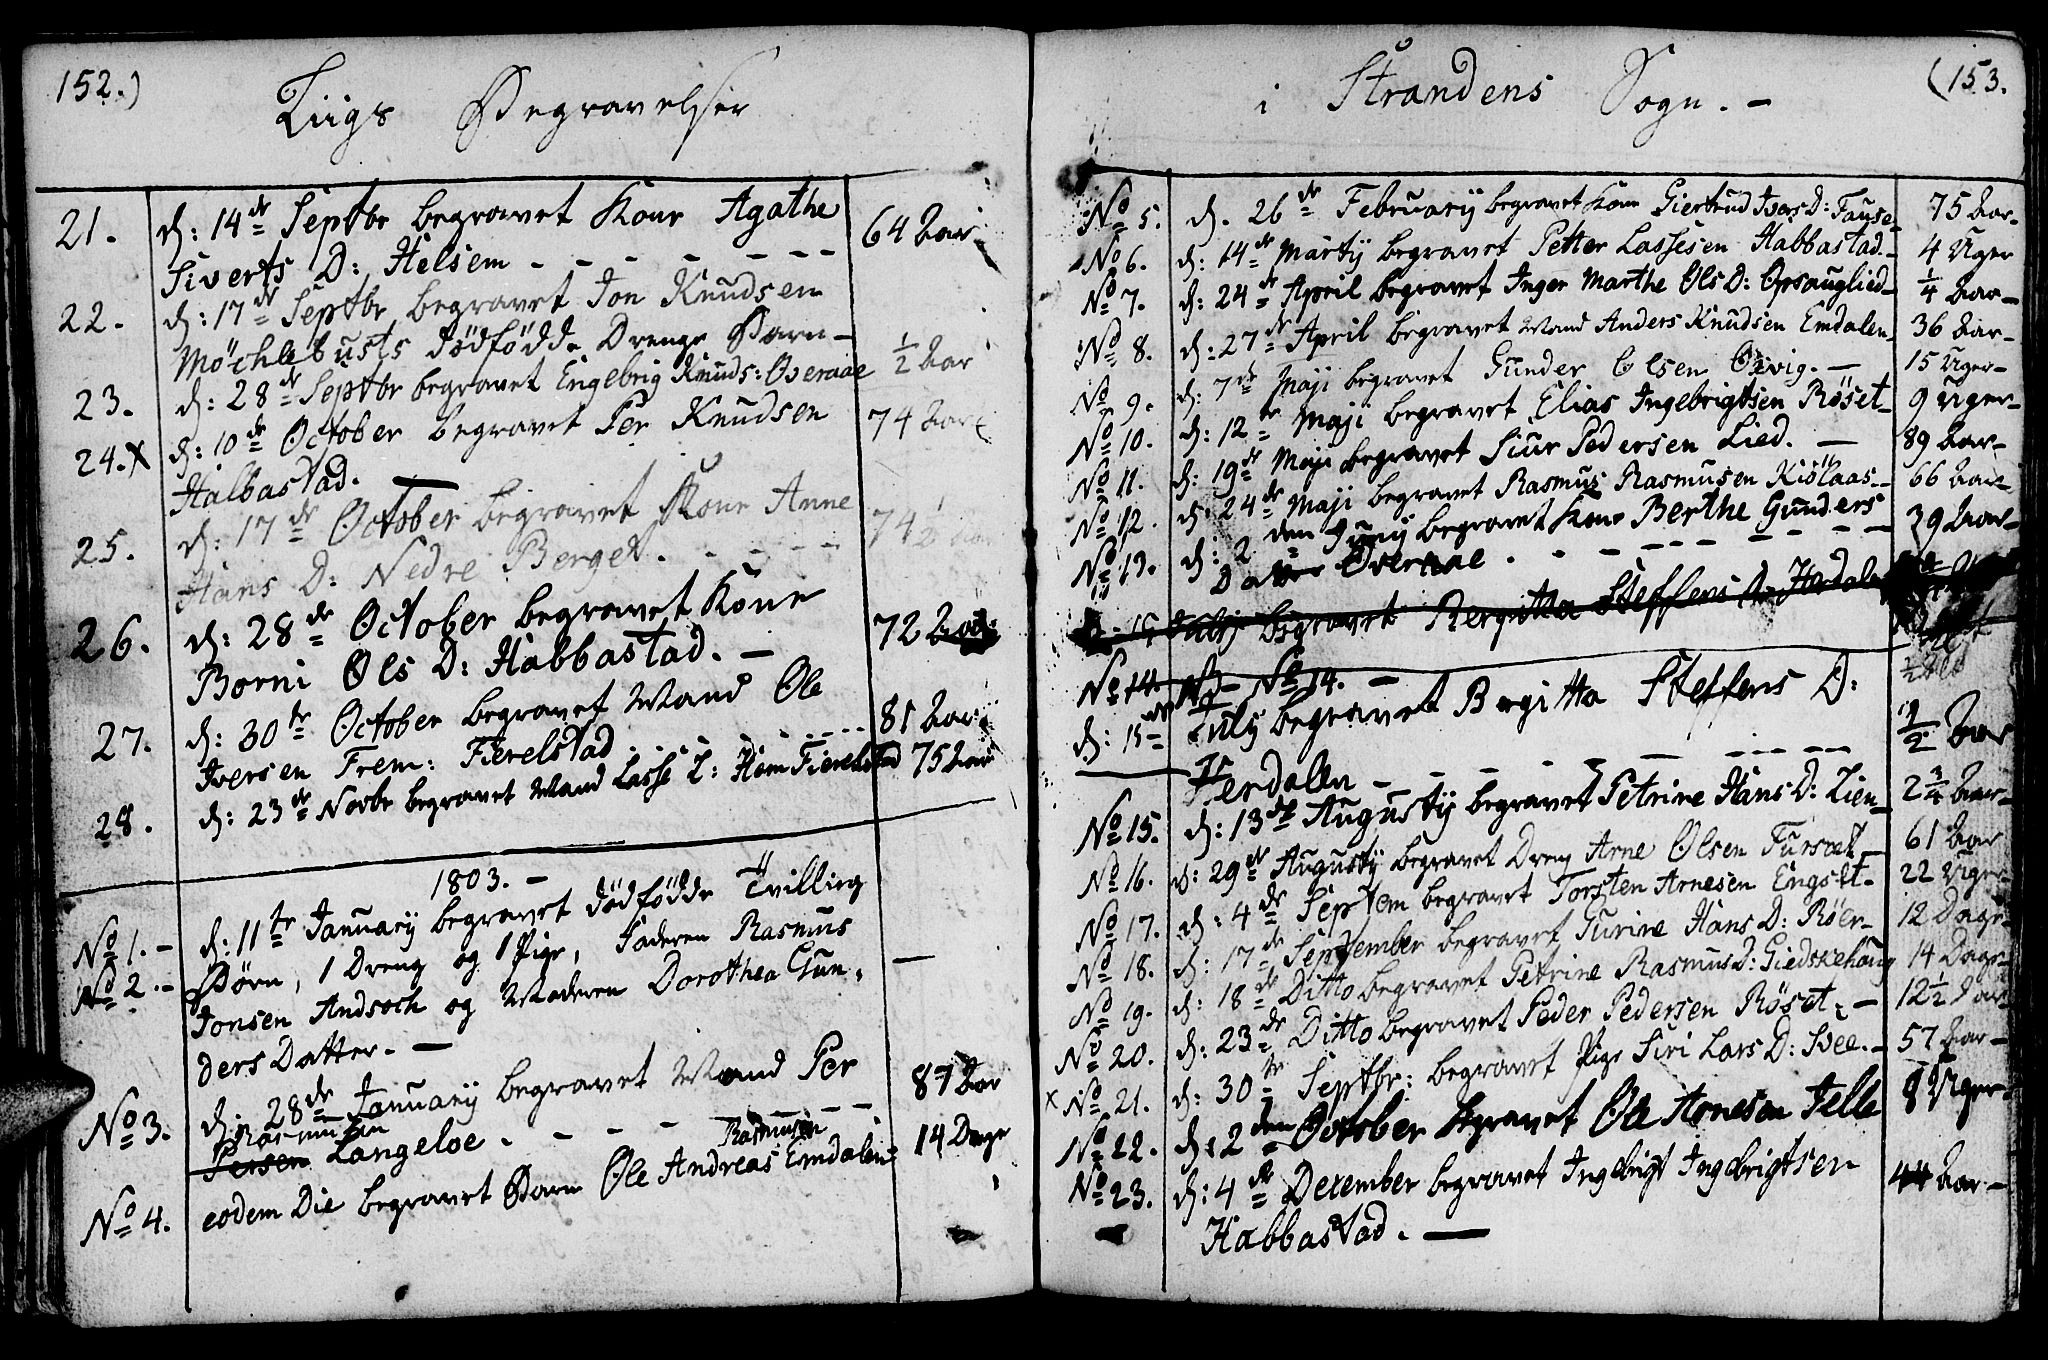 152.)
Liigs Begravelser
21. d: 14de Septbr begravet Kone Agathe 64 Aar
Siverts D: Helsem - - - - - - -
22. d: 17de Septbr begravet Jon Knudsen
Möchlebusts dödfödde Drenge Barn -
23. d: 28de Septbr begravet Engebrig Knuds: Overaae 1/2 Aar
24. x d: 10de October begravet Per Knudsen 74 Aar
Halbastad. —
25. d: 17de October begravet Kone Anne 74 1/2 Aar
Hans D: Nedre Berget. - - - - -
26. d: 28de October begravet Kone 72 Aar
Borni Ols D: Habbastad. -
27. d: 30te October begravet Mand Ole 81 Aar
Iversen Frem: Fierelstad - - - - - -
28. d: 23de Novbr begravet Mand Lasse L: Hem Fierelstad 75 Aar
1803. -
No 1. - d: 11te January begravet dödfödde Tvilling
No 2. - Börn, 1 Dreng og 1 Pige, Faderen Rasmus —
Jonsen Andsoch og Moderen Dorothea Gun-
ders Datter. —
No 3. d: 28de January begravet Mand Per 87 Aar
Rasmussen
Persen Langeloe - - - - - - -
Rasmusen
No 4. eodem Die begravet Barn Ole Andreas Emdalen 14 Dage
(153.
i Strandens Sogn. -
No 5. d. 26de February begravet Kone Giertrud Ivers D: Fause- 75 Aar-
No 6. d: 14de Martij begravet Petter Lassesen Habbastad- 4 Uger
No 7. d: 24de April begravet Inger Marthe Ols D: Opsauglied- 1/4 Aar-
No 8. d: 27de April begravet Mand Anders Knudsen Emdalen- 36 Aar-
No 9. d: 7de Maji begravet Gunder Olsen Ovig. - 15 Uger-
No 10. d: 12te Maji begravet Elias Ingebrigtsen Röset- 9 Uger-
No 11. d: 19de Maji begravet Siur Pedersen Lied. - 89 Aar-
No 12. d: 24de Maji begravet Rasmus Rasmusen Kiölaas- 66 Aar
No 13. d: 2den Juny begravet Kone Berthe Gunders 39 Aar-
Datter Overaae - - - - - - - -
d: 15 July begravet Bergitta Steffens D: Herdalen
No 14. No 14. -
d: 15de July begravet Bergitta Steffens D: 1/2 Aar
Herdalen - - - - - - - -
No 15. d: 13de Augusty begravet Petrine Hans D: Lien- 2 3/4 Aar-
No 16. d: 29de Augusty begravet Dreng Arne Olsen Fursæt- 61 Aar
No 17. d: 4de Septem begravet Torsten Arnesen Engsæt- 22 Uger-
No 18. d: 17de September begravet Turine Hans D: Röer- 12 Dage-
No 19. d: 18de Ditto begravet Petrine Rasmus D: Giedskehaug 14 Dage-
No 20. d: 23de Ditto begravet Peder Pedersen Röset. - 12 1/2 Aar
x No 21. d: 30te Septbr: begravet Pige Siri Lars D: Svee. - 57 Aar-
No 22. d: 2den October begravet Ole Arnesen Felle 8 Uger-
No 23. d: 4de December begravet Ingebrigt Ingebrigtsen 44 Aar-
Habbastad. —